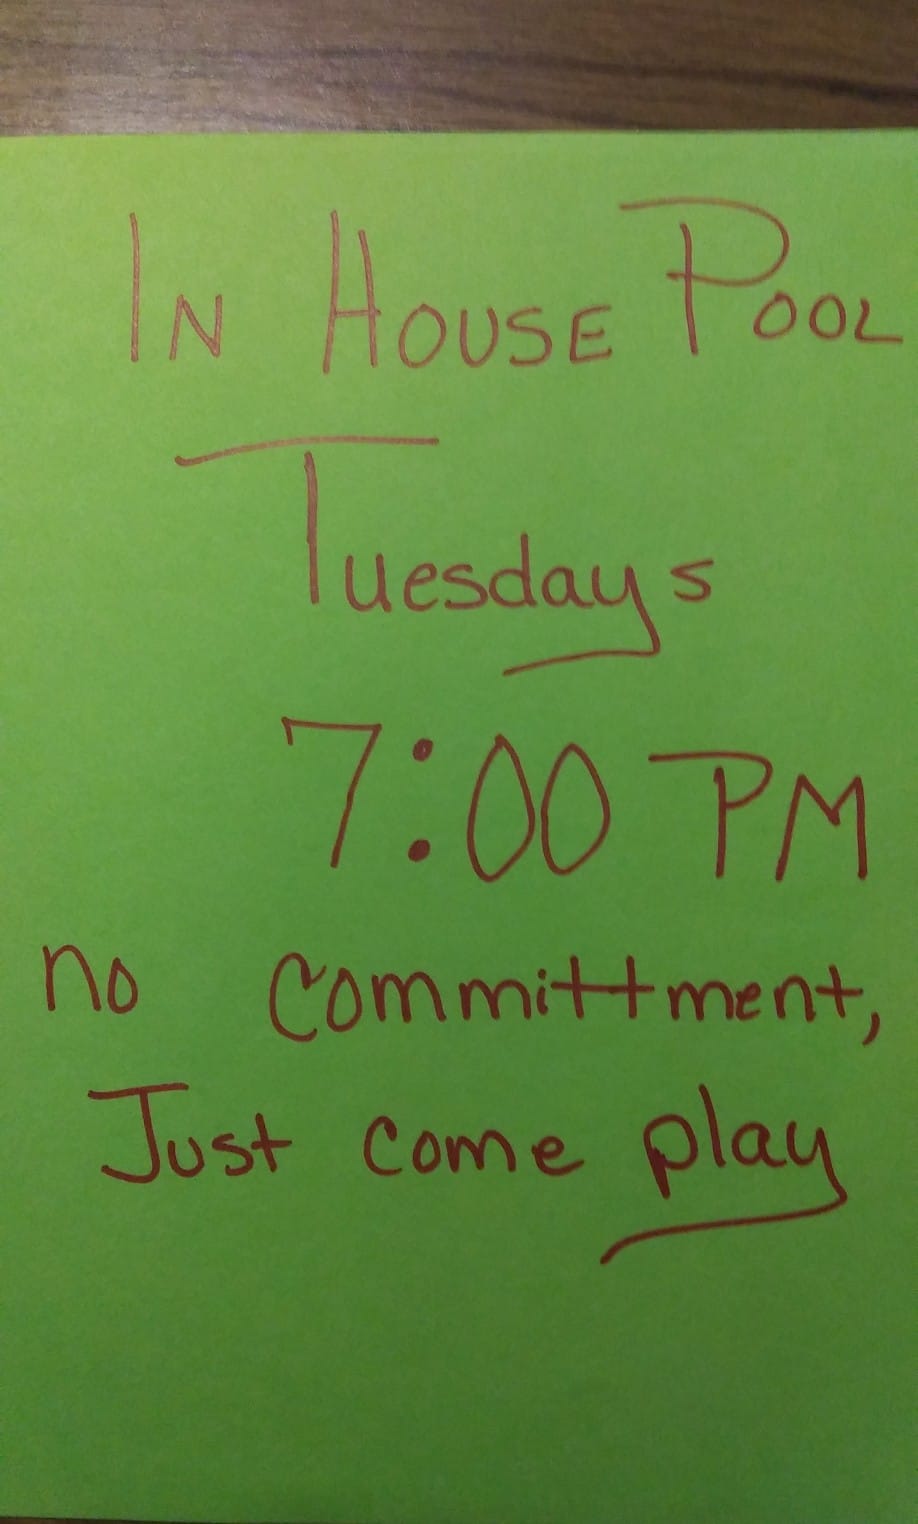 In House Pool
Tuesdays
7:00 PM
no committment,
Just come play